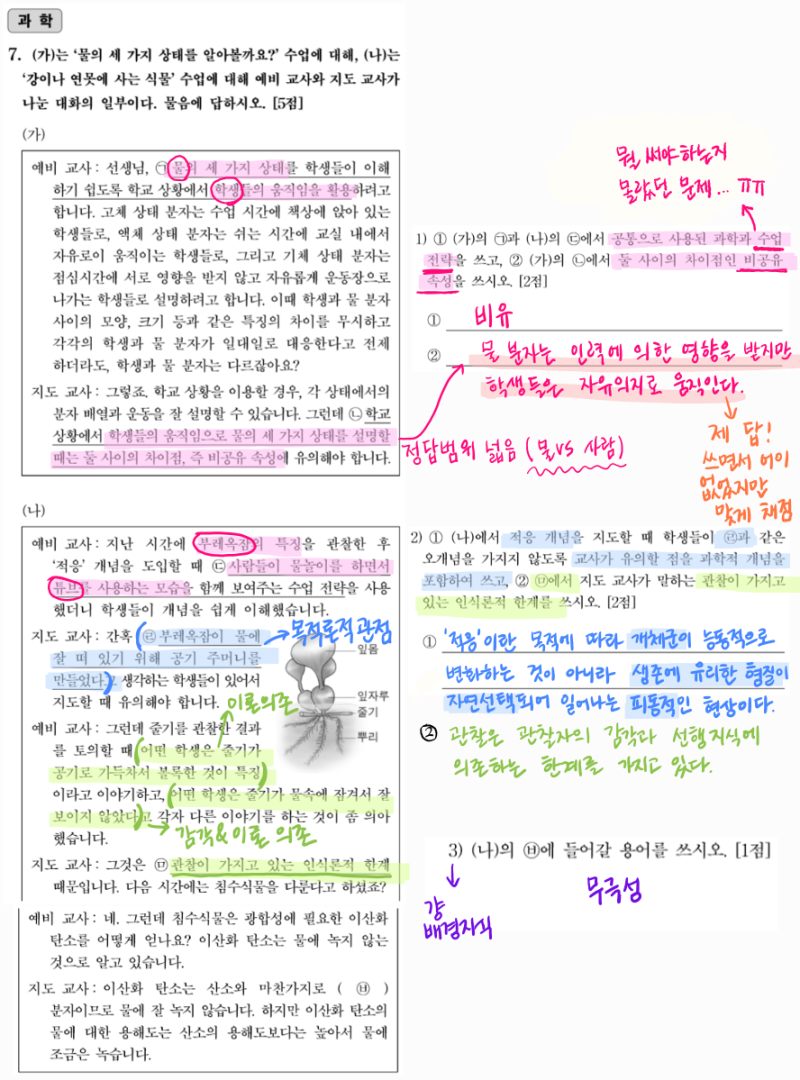 과 학
7. (가)는 ‘물의 세 가지 상태를 알아볼까요?’ 수업에 대해, (나)는
‘강이나 연못에 사는 식물’ 수업에 대해 예비 교사와 지도 교사가
나눈 대화의 일부이다. 물음에 답하시오. [5점]
(가)
예비 교사 : 선생님, ㉠물의 세 가지 상태를 학생들이 이해
하기 쉽도록 학교 상황에서 학생들의 움직임을 활용하려고
합니다. 고체 상태 분자는 수업 시간에 책상에 앉아 있는
학생들로, 액체 상태 분자는 쉬는 시간에 교실 내에서
자유로이 움직이는 학생들로, 그리고 기체 상태 분자는
점심시간에 서로 영향을 받지 않고 자유롭게 운동장으로
나가는 학생들로 설명하려고 합니다. 이때 학생과 물 분자
사이의 모양, 크기 등과 같은 특징의 차이를 무시하고
각각의 학생과 물 분자가 일대일로 대응한다고 전제
하더라도, 학생과 물 분자는 다르잖아요?
지도 교사 : 그렇죠. 학교 상황을 이용할 경우, 각 상태에서의
분자 배열과 운동을 잘 설명할 수 있습니다. 그런데 ㉡학교
상황에서 학생들의 움직임으로 물의 세 가지 상태를 설명할
때는 둘 사이의 차이점, 즉 비공유 속성에 유의해야 합니다.
(나)
예비 교사 : 지난 시간에 부레옥잠의 특징을 관찰한 후
‘적응’ 개념을 도입할 때 ㉢사람들이 물놀이를 하면서
튜브를 사용하는 모습을 함께 보여주는 수업 전략을 사용
했더니 학생들이 개념을 쉽게 이해했습니다.
지도 교사 : 간혹 (㉣부레옥잠이 물에 → 목적론적 관점
잘 떠 있기 위해 공기 주머니를
만들었다.) 생각하는 학생들이 있어서
지도할 때 유의해야 합니다.
이론의존
잎몸
잎자루
줄기
뿌리
예비 교사 : 그런데 줄기를 관찰한 결과
를 토의할 때 (어떤 학생은 줄기가
공기로 가득차서 볼록한 것이 특징)
이라고 이야기하고, (어떤 학생은 줄기가 물속에 잠겨서 잘
보이지 않았다)고 각자 다른 이야기를 하는 것이 좀 의아
했습니다. → 감각&이론 의존
지도 교사 : 그것은 ㉤관찰이 가지고 있는 인식론적 한계
때문입니다. 다음 시간에는 침수식물을 다룬다고 하셨죠?
예비 교사 : 네. 그런데 침수식물은 광합성에 필요한 이산화
탄소를 어떻게 얻나요? 이산화 탄소는 물에 녹지 않는
것으로 알고 있습니다.
지도 교사 : 이산화 탄소는 산소와 마찬가지로 ( ㉥ )
분자이므로 물에 잘 녹지 않습니다. 하지만 이산화 탄소의
물에 대한 용해도는 산소의 용해도보다는 높아서 물에
조금은 녹습니다.
뭘 써야하는지
몰랐던 문제... ㅠㅠ
1) ① (가)의 ㉠과 (나)의 ㉢에서 공통으로 사용된 과학과 수업
전략을 쓰고, ② (가)의 ㉡에서 둘 사이의 차이점인 비공유
속성을 쓰시오. [2점]
① 비유
② 물 분자는 인력에 의한 영향을 받지만
학생들은 자유의지로 움직인다.
정답범위 넓음 (물 vs 사람)
제 답!
쓰면서 어이
없었지만
맞게 채점
2) ① (나)에서 적응 개념을 지도할 때 학생들이 ㉣과 같은
오개념을 가지지 않도록 교사가 유의할 점을 과학적 개념을
포함하여 쓰고, ② ㉤에서 지도 교사가 말하는 관찰이 가지고
있는 인식론적 한계를 쓰시오. [2점]
① ‘적응’이란 목적에 따라 개체군이 능동적으로
변화하는 것이 아니라 생존에 유리한 형질이
자연선택되어 일어나는 피동적인 현상이다.
② 관찰은 관찰자의 감각과 선행지식에
의존하는 한계를 가지고 있다.
3) (나)의 ㉥에 들어갈 용어를 쓰시오. [1점]
걍
배경지식
무극성